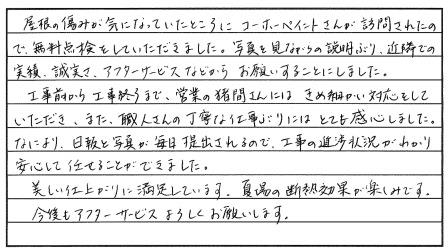 屋根の傷みが気になっていたところに コーホーペイントさんが訪問されたの
で、無料点検をしていただきました。写真を見ながらの説明ぶり、近隣での
実績、誠実さ、アフターサービスなどから お願いすることにしました。
工事前から工事終うまで、営業の猪間さんには きめ細かい対応をして
いただき、また、職人さんの丁寧な仕事ぶりには とても感心しました。
なにより、日報と写真が毎日提出されるので、工事の進歩状況がわかり
安心して任せることができました。
美しい仕上がりに満足しています。夏場の断熱効果が楽しみです。
今後もアフターサービスよろしくお願いします。